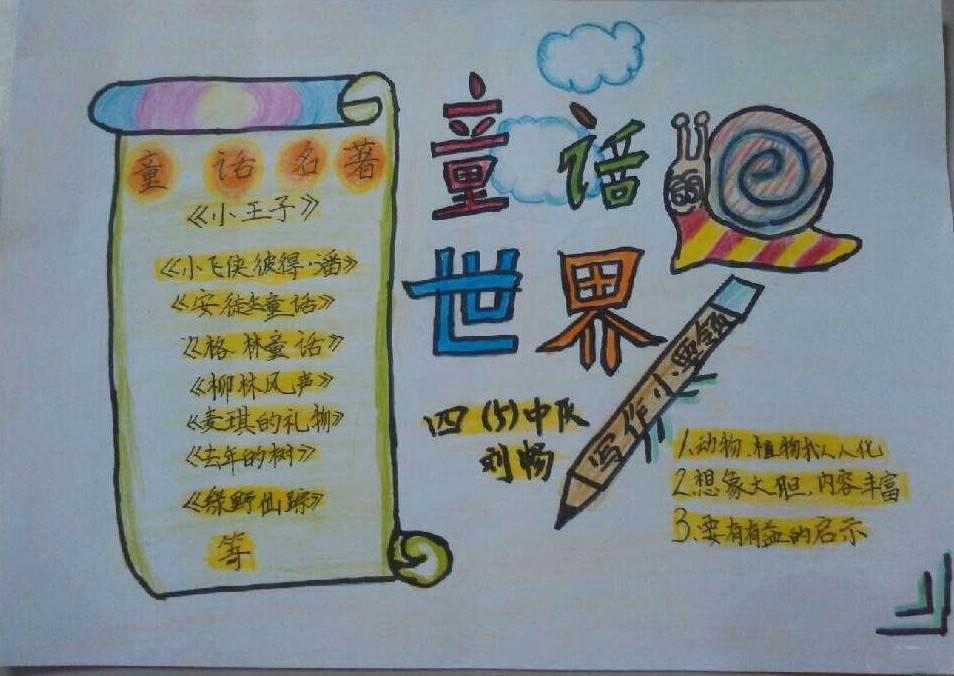 童话名著
《小王子》
《小飞侠彼得·潘》
《安徒生童话》
《格林童话》
《柳林风声》
《麦琪的礼物》
《去年的树》
《绿野仙踪》
等
童话
世界
四(5)中队
刘畅
写作小要领
1.动物、植物拟人化
2.想象大胆,内容丰富
3.要有有益的启示